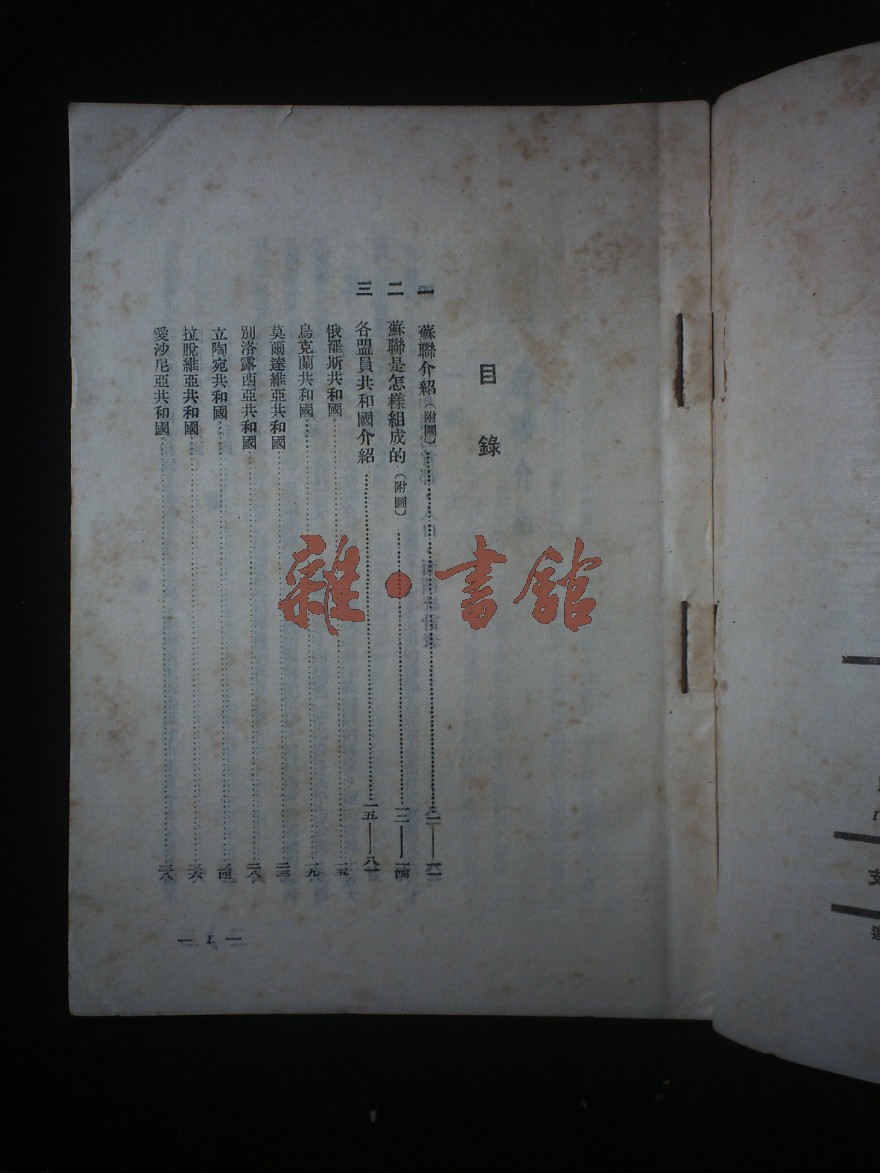 目錄
一 蘇聯介紹(附圖)
二 蘇聯是怎樣組成的(附圖) 一三——一四
三 各盟員共和國介紹 一五——八一
俄羅斯共和國 一五
烏克蘭共和國 一九
莫爾達維亞共和國
別洛露西亞共和國 二八
立陶宛共和國
拉脫維亞共和國
愛沙尼亞共和國
— 1 —
雜·書館
支